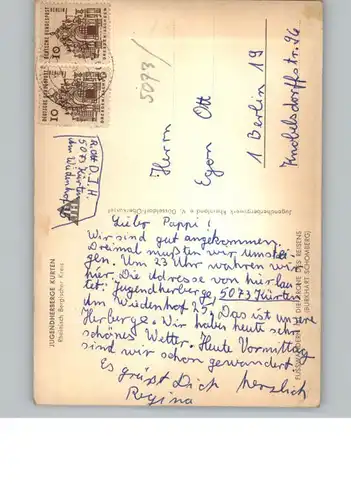 DEUTSCHE BUNDESPOST BERLIN
10
DEUTSCHE BUNDESPOST BERLIN
10
5073/
R. Ott D.J.H.
5073 Kürten
Am Wiedenhof 25
Herrn
Egon Ott
1 Berlin 19
Knobelsdorffstr. 96
Lieber Pappi!
Wir sind gut angekommen.
Dreimal mußten wir umstei-
gen. Um 23 Uhr waren wir
hier. Die Adresse von hier lau-
tet: Jugendherberge, 5073 Kürten
Am Wiedenhof 25! Das ist unsere
Herberge. Wir haben heute sehr
schönes Wetter. Heute Vormittag
sind wir schon gewandert.
Es grüßt Dich herzlich
Regina
JUGENDHERBERGE KÜRTEN
Rheinisch Bergischer Kreis
Jugendherbergswerk Rheinland e. V. Düsseldorf-Oberkassel
FUSSWANDERN DIE KRONE DES REISENS
(BURKHART SCHOMBERG)